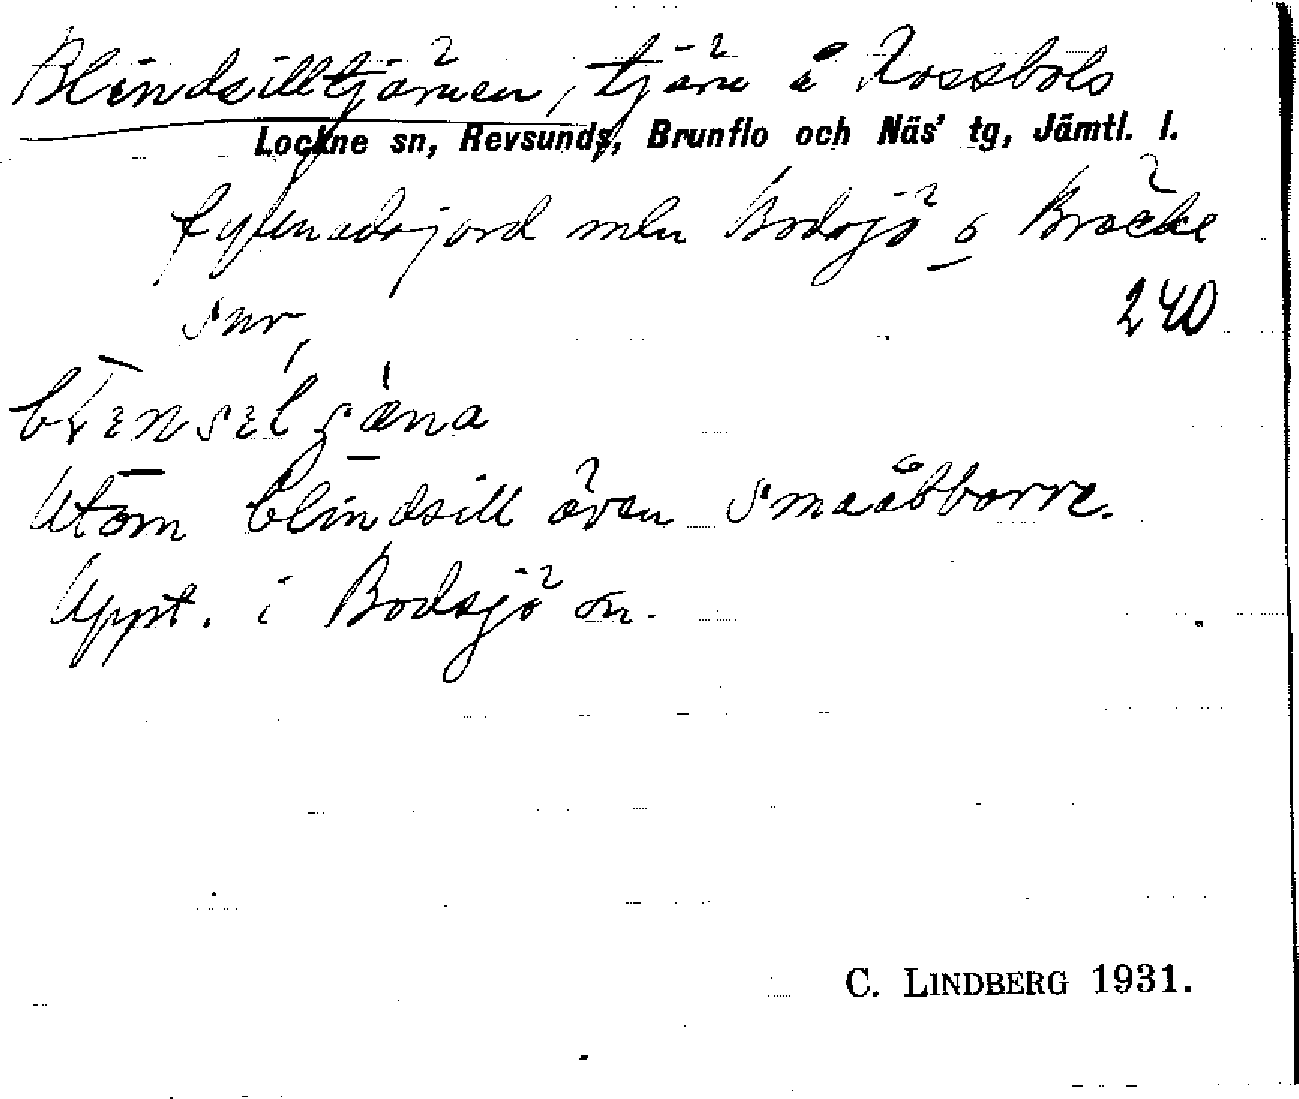 Blindsilltjärnen, tjärn å Rossbols
Lockne sn, Revsunds, Brunflo och Näs' tg, Jämtl. l.
fyllnadsjord mln Bodsjö o Bräcke
snr,
240
Utom blindsill även småabborre.
Uppt. i Bodsjö sn.
C. LINDBERG 1931.